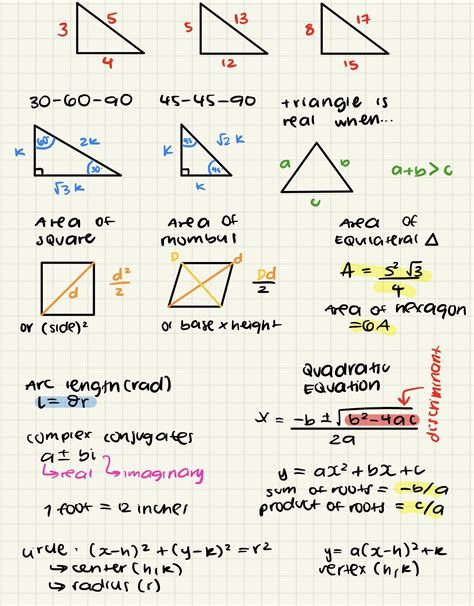 3 5 4
5 13 12
8 17 15
30-60-90
45-45-90
triangle is
real when...
k 60° 2k 30° √3 k
k 45 √2 k 45 k
a b c
a+b>c
Area of
square
d
d²/2
or (side)²
Area of
rhombus
D d
Dd/2
or base x height
Area of
Equilateral Δ
A = s²√3/4
Area of hexagon
=6A
Arc length (rad)
l = θr
complex conjugates
a ± bi
↳real ↳imaginary
1 foot = 12 inches
Quadratic
Equation
x = -b ± √b²-4ac / 2a
discriminant
y = ax² + bx + c
sum of roots = -b/a
product of roots = c/a
circle: (x-h)² + (y-k)² = r²
→ center (h,k)
→ radius (r)
y = a(x-h)² + k
vertex (h,k)